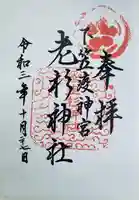 奉拝
下笠渡神宮
老杉神社
令和三年十月十七日